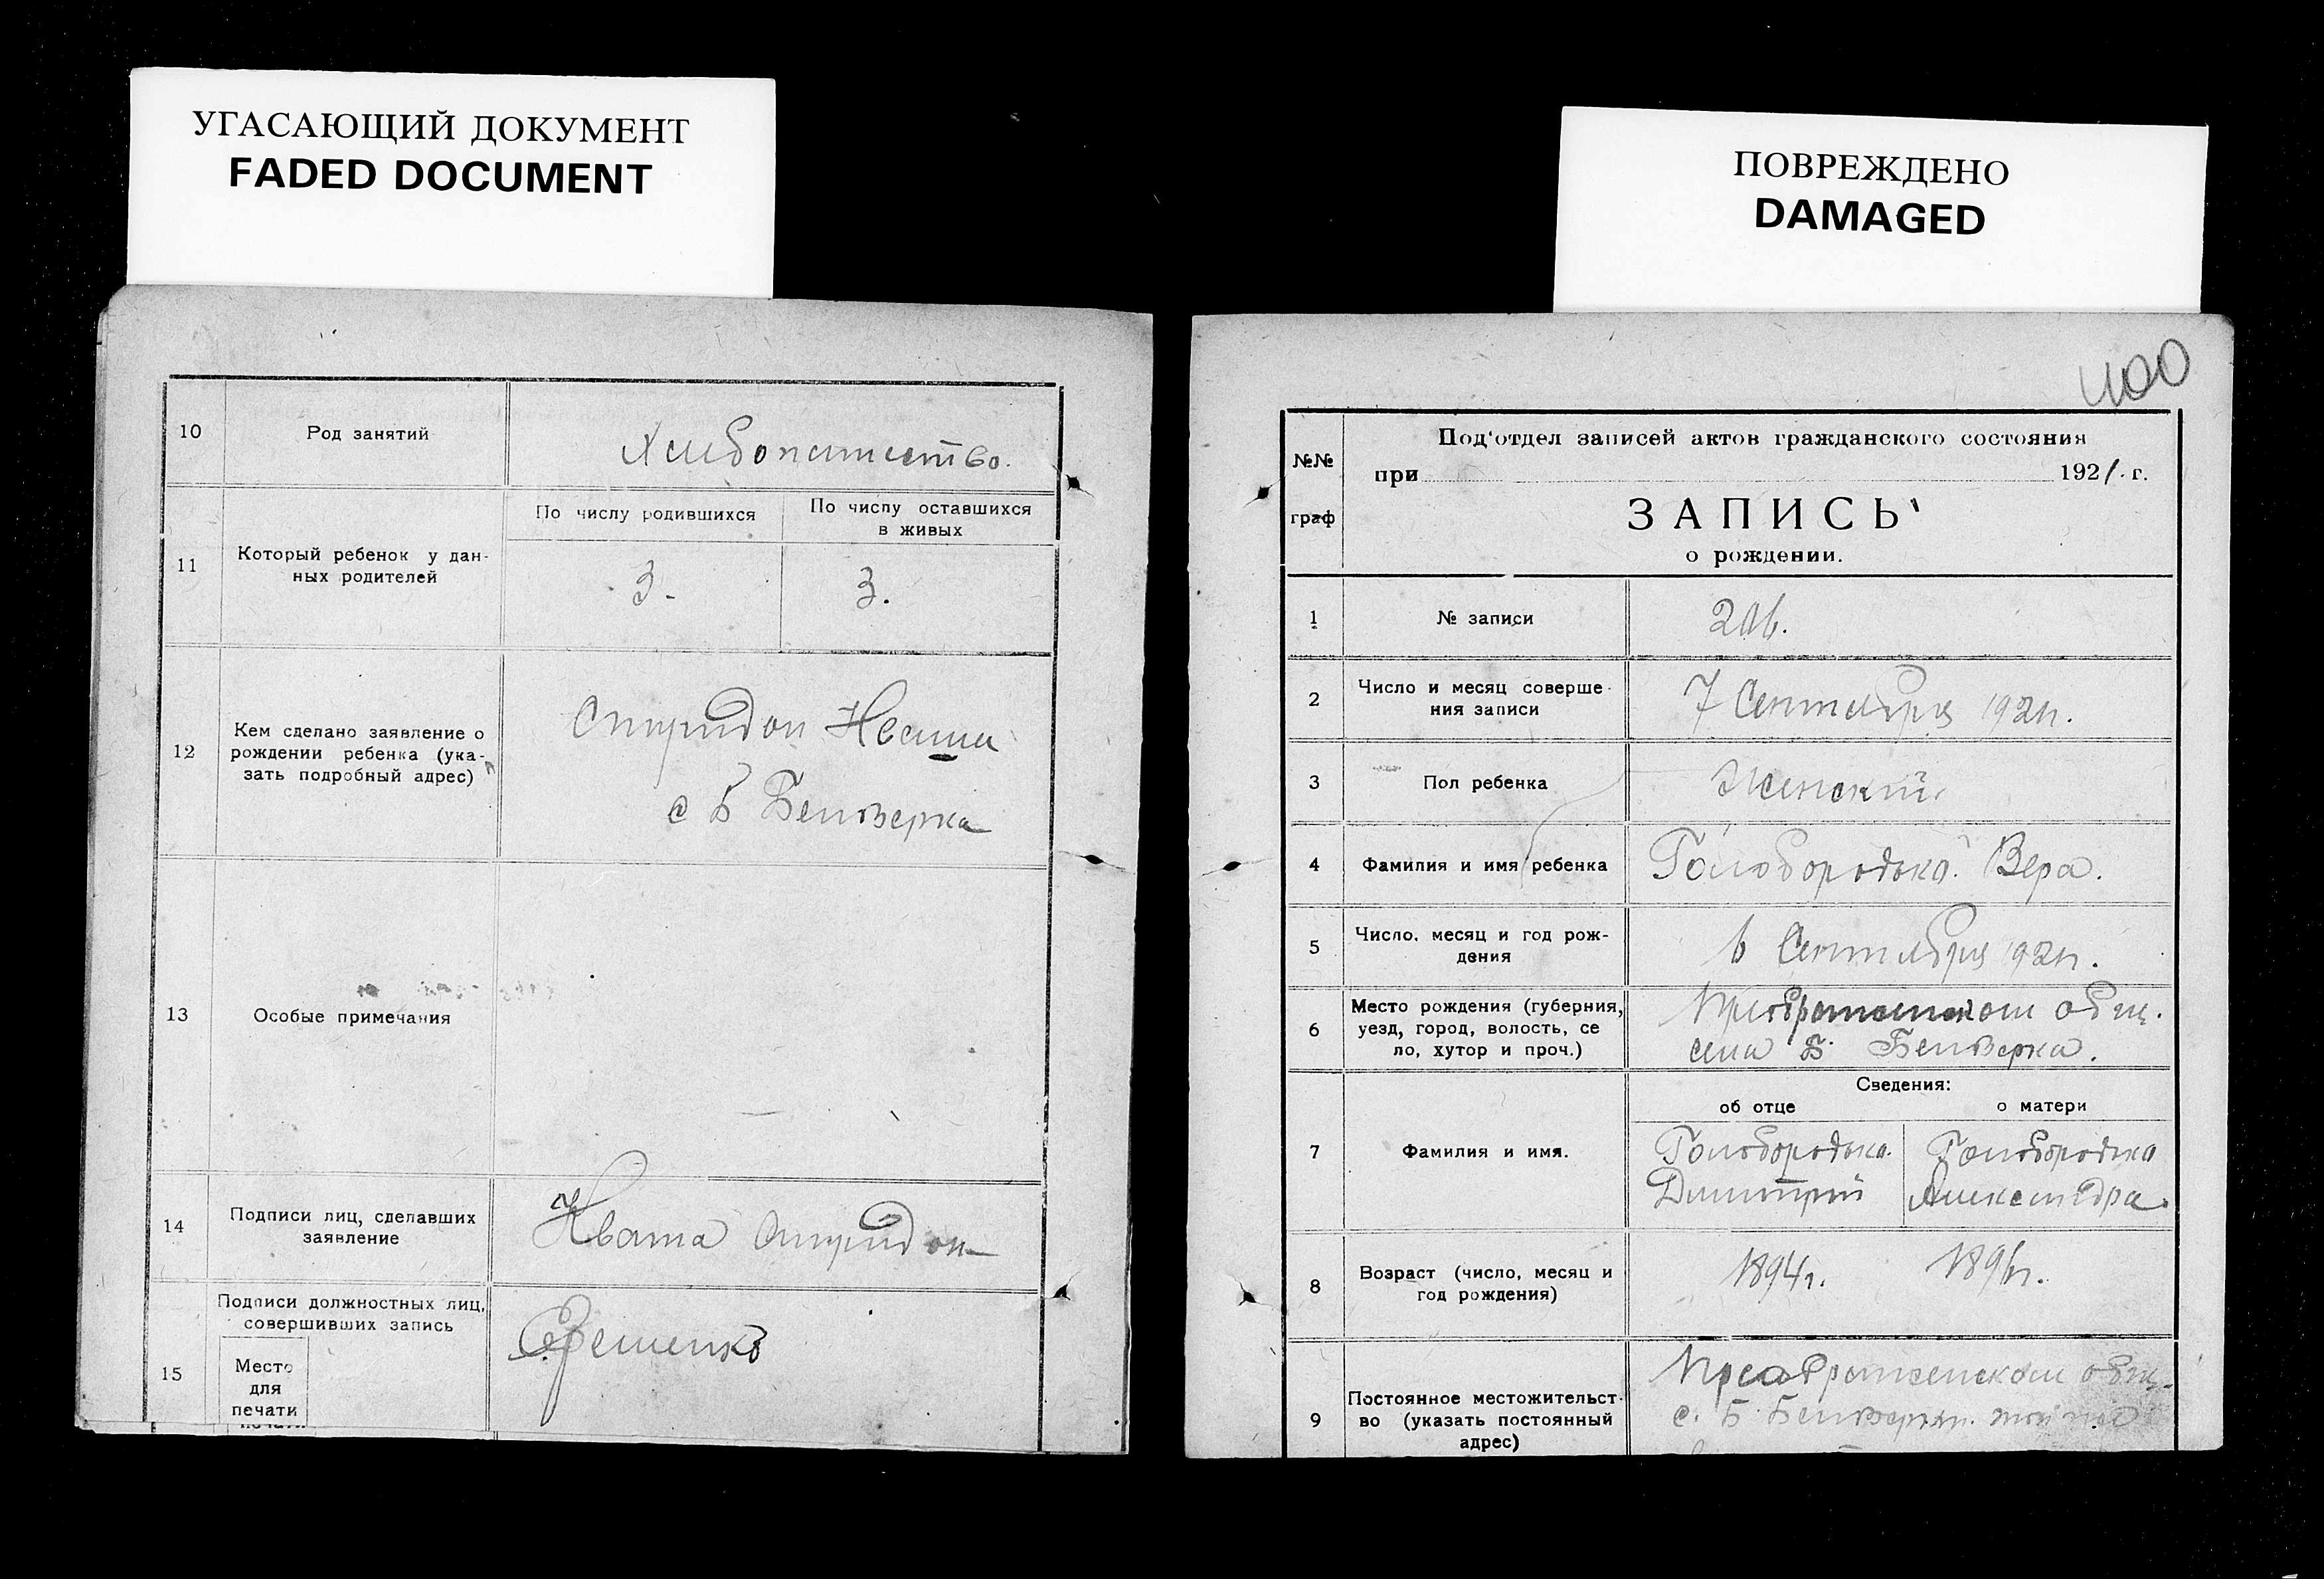 УГАСАЮЩИЙ ДОКУМЕНТ
FADED DOCUMENT
10
Род занятий
11
Который ребенок у дан-
ных родителей
По числу родившихся
По числу оставшихся
в живых
3.
3.
12
Кем сделано заявление о
рождении ребенка (ука-
зать подробный адрес)
Спиридон
с Б Белозерка
13
Особые примечания
14
Подписи лиц, сделавших
заявление
Спиридон
15
Подписи должностных лиц,
совершивших запись
Место
для
печати
ПОВРЕЖДЕНО
DAMAGED
400
№№
граф
Под'отдел записей актов гражданского состояния
при 1921 г.
ЗАПИСЬ
о рождении.
1
№ записи
2
Число и месяц соверше-
ния записи
7 Сентября 1921г.
3
Пол ребенка
Женский
4
Фамилия и имя ребенка
Голобородько Вера.
5
Число, месяц и год рож-
дения
6 Сентября 1921г.
6
Место рождения (губерния,
уезд, город, волость, се
ло, хутор и проч.)
общ.
села Б. Белозерка.
Сведения:
об отце
о матери
7
Фамилия и имя.
Голобородько
Дмитрий
Голобородько
Александра.
8
Возраст (число, месяц и
год рождения)
1894г.
9
Постоянное местожительст-
во (указать постоянный
адрес)
общ.
с. Б. Белозерки